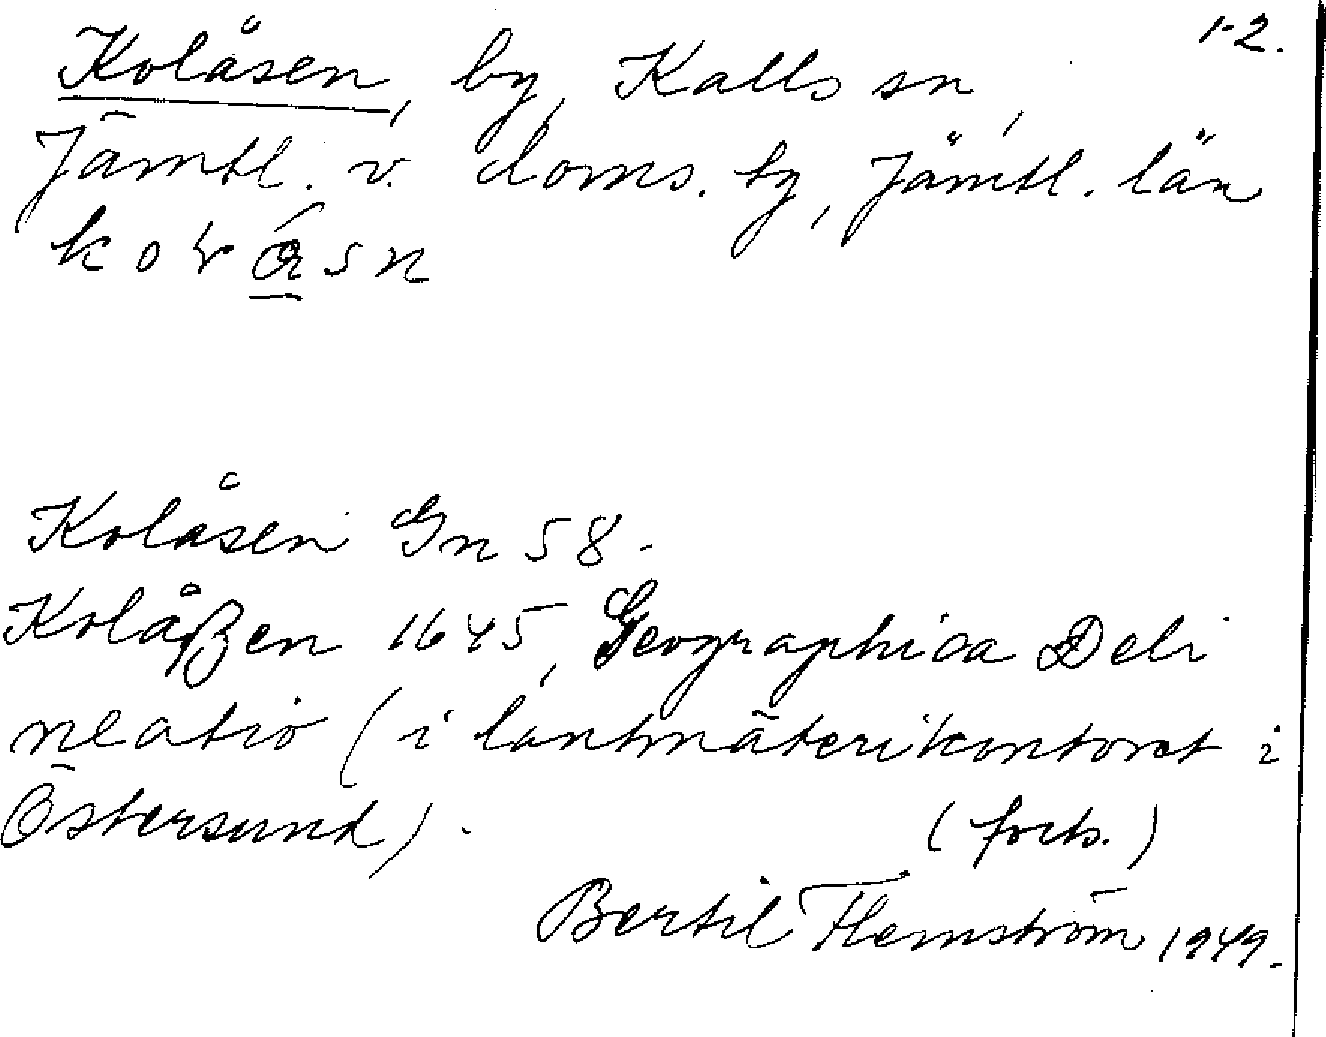 1-2.
Kolåsen, by, Kalls sn,
Jämtl. v. doms. by, Jämtl. län
Kolåsen Gn 58.
Kolåßen 1645, Geographica Deli
neatio (i lantmäterikontoret i
Östersund).
(forts.)
Bertil Flemström 1949.